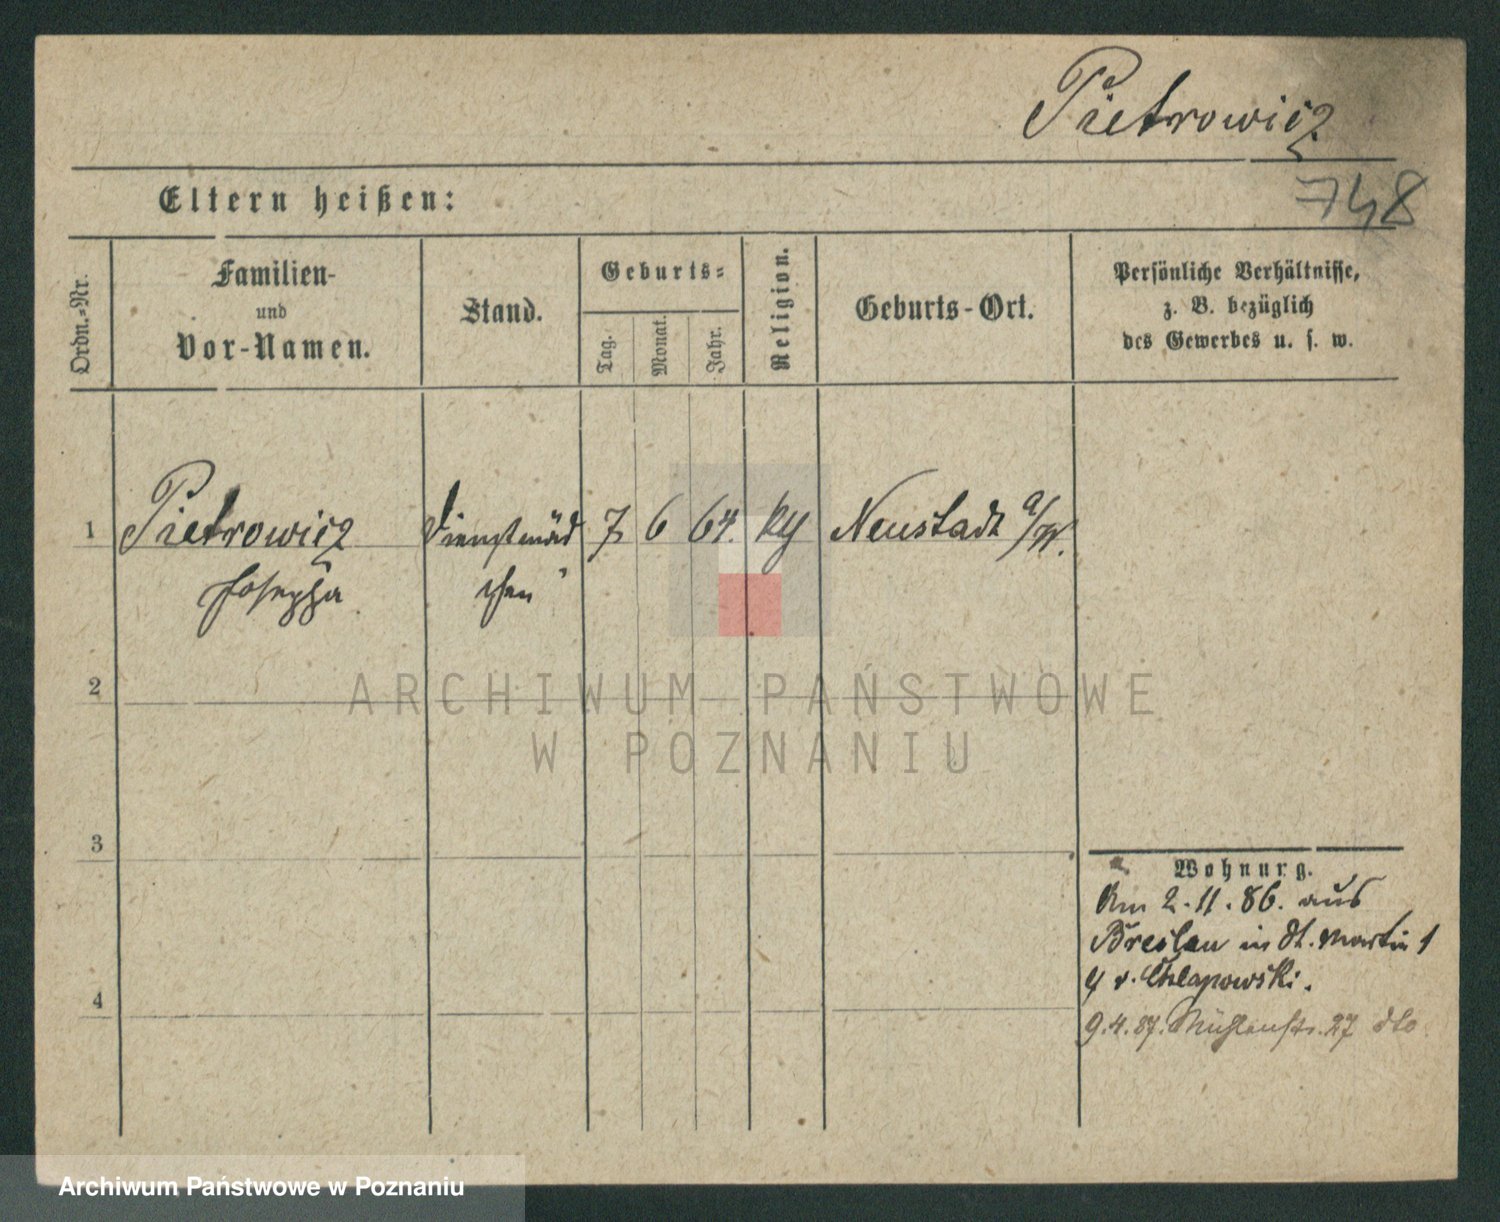 Pietrowicz
748
Eltern heißen:
Ordn.-Nr.
Familien-
und
Vor-Namen.
Stand.
Geburts-
Tag.
Monat.
Jahr.
Religion.
Geburts-Ort.
Persönliche Verhältnisse,
z. B. bezüglich
des Gewerbes u. s. w.
1 Pietrowicz Dienstmäd 7 6 64. Neustadt a/W.
Josepha chen
2
ARCHIWUM PAŃSTWOWE
W POZNANIU
3
4
Wohnung.
Am 2.11.86. aus
Breslau in St. Martin 1
v. Chlapowski.
9.4.87. Mühlenstr. 27 dto
Archiwum Państwowe w Poznaniu